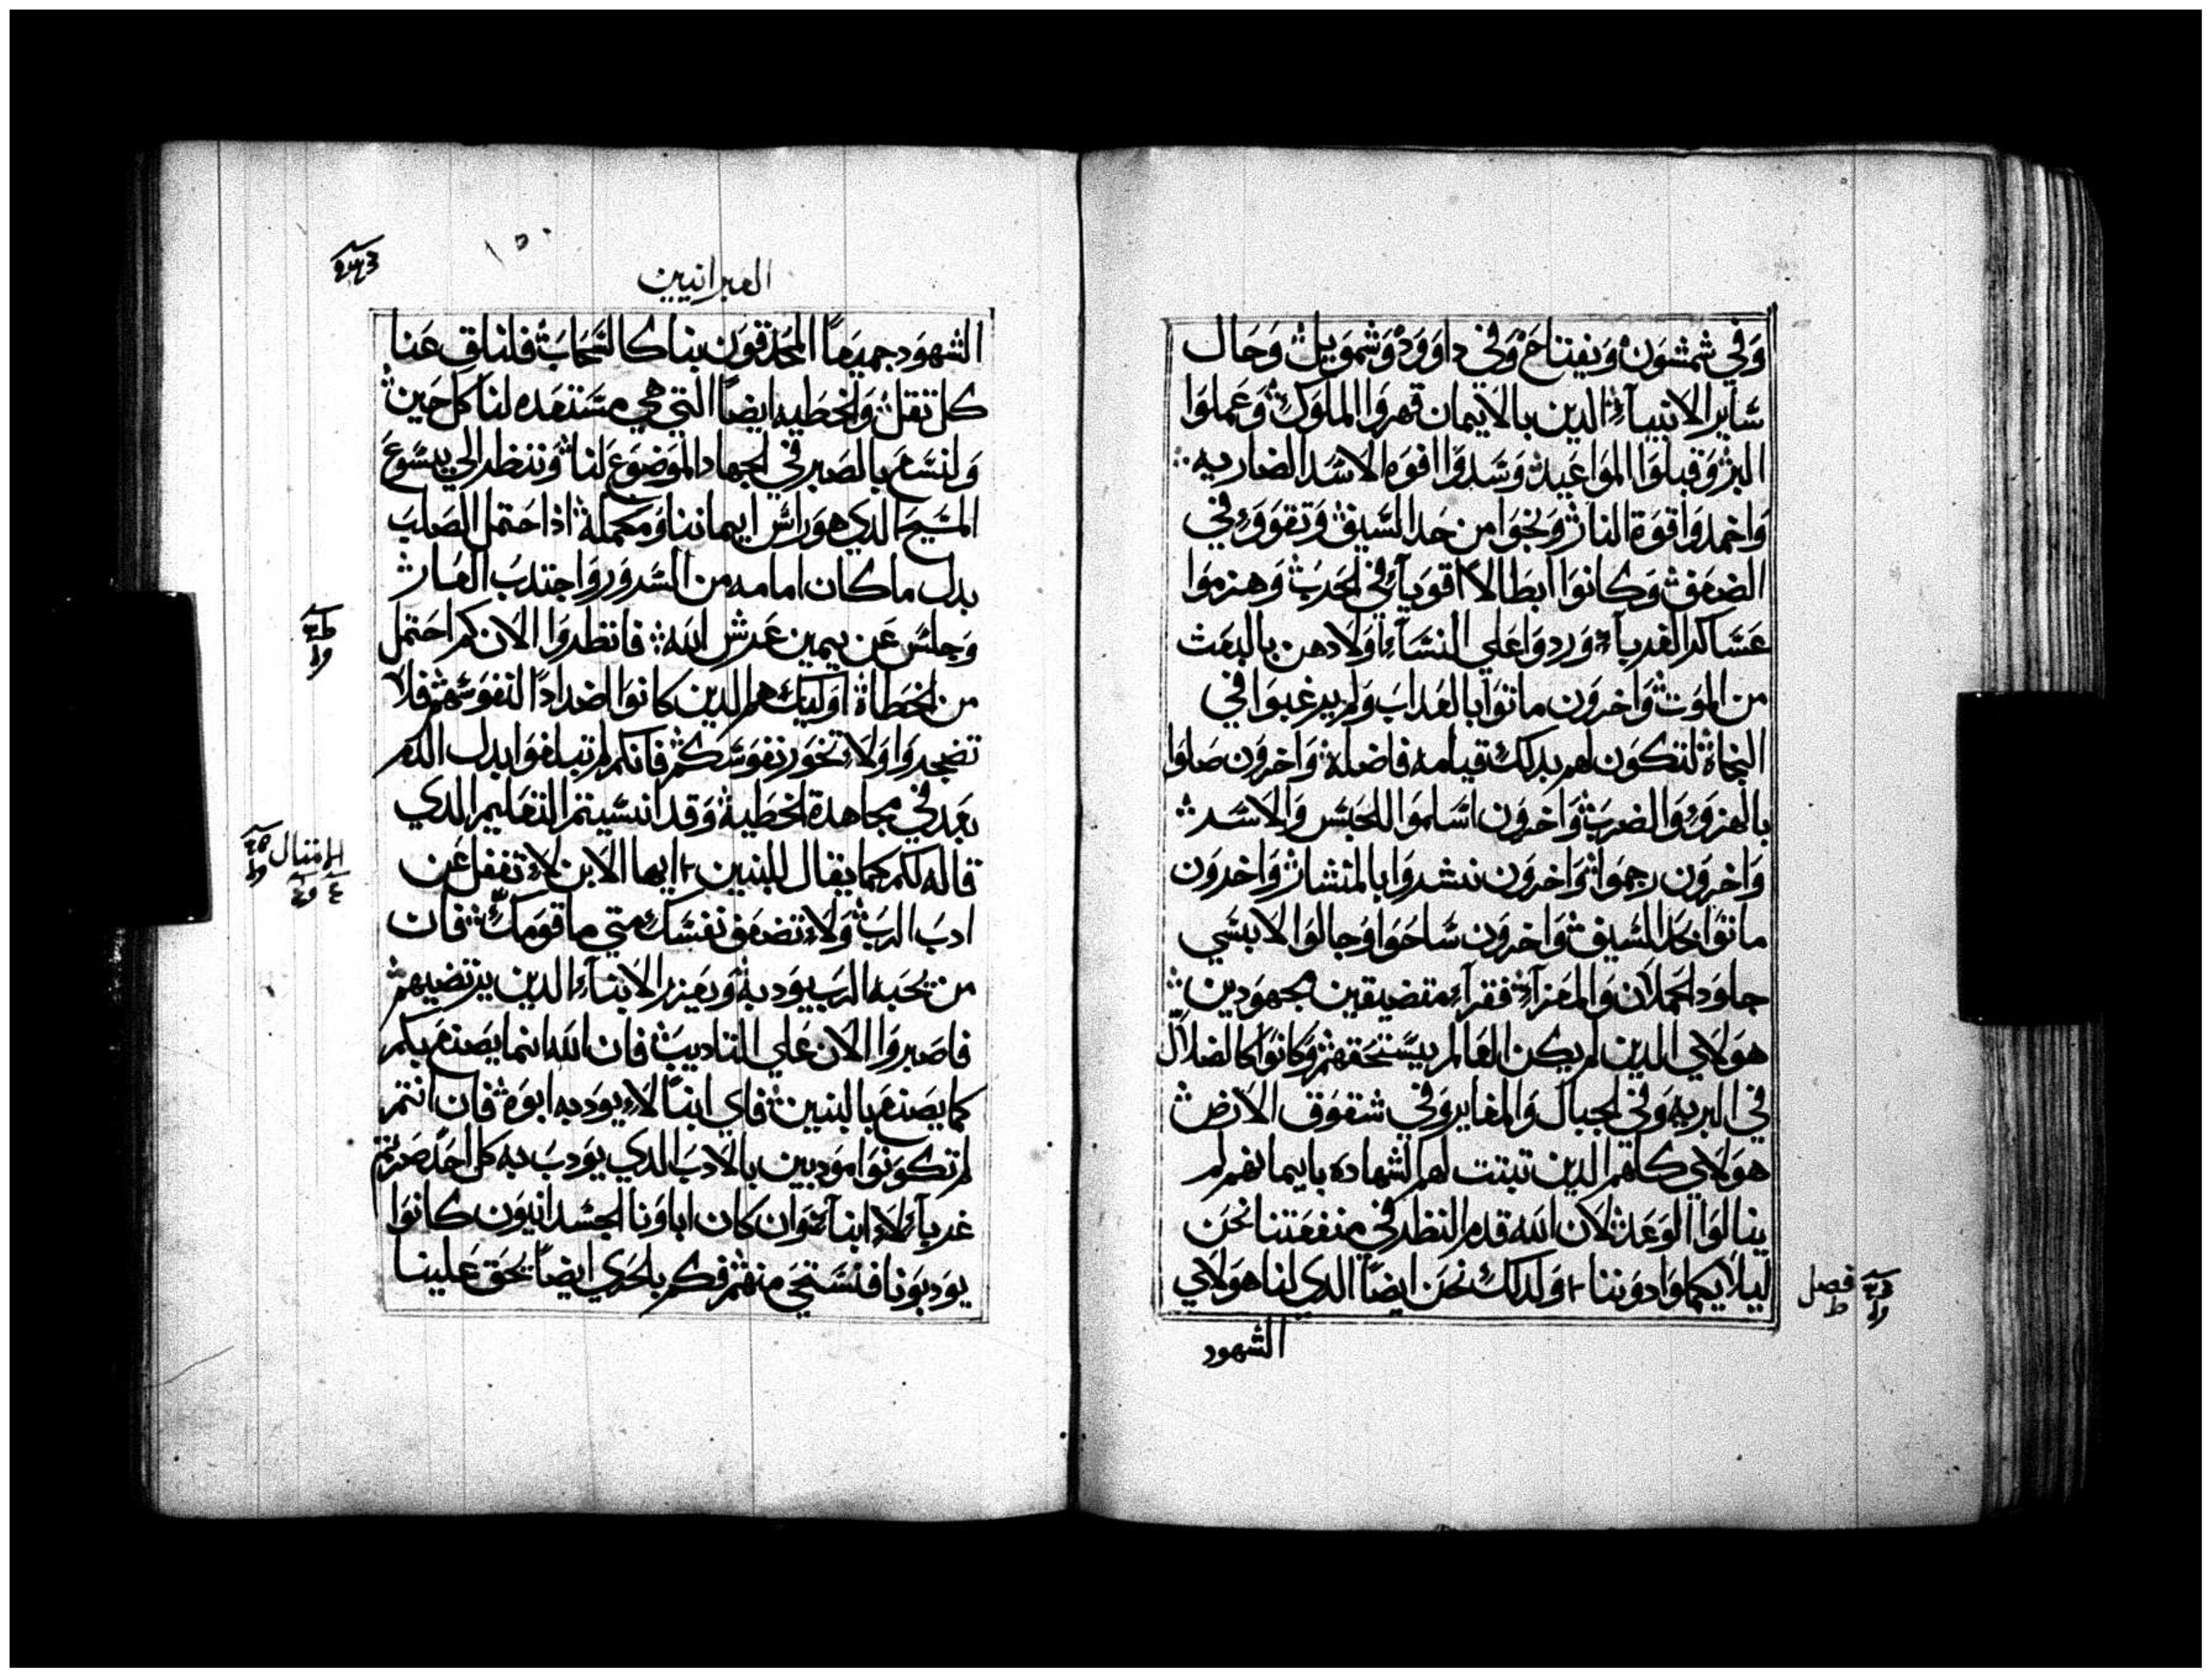 وفي شمشون ويفتاح وفي داوود وشمويل وحال
ساير الانبياء الدين بالايمان قهروا الملوك وعملوا
البر وقبلوا المواعيد وسدوا افوه الاسد الضاريه
واخمدوا قوة النار ونجوا من حد السيف وتقووء في
الضعف وكانوا ابطالا اقوياء في الحرب وهزموا
عساكر الغرباء وردوا علي النساء اولادهن بالبعث
من الموت واخرون ماتوا بالعداب ولم يرغبوا في
النجاة لتكون لهم بدلك قيامه فاضله واخرون صلوا
بالهزوء والضرب واخرون اسلموا للحبس والاسر
واخرون رجموا واخرون نشروا بالمنشار واخرون
ماتوا بحد السيف واخرون ساحوا وجالوا لابسي
جلود الحملان والمعزاء فقراء متضيقين مجهودين
هولاي الدين لم يكن العالم يستحقهم وكانوا كالضلال
في البريه وفي الجبال والمغاير وفي شقوق الارض
هولاي كلهم الدين تبتت لهم الشهاده بايمانهم لم
ينالوا الوعد لان الله قدم النظر في منفعتنا نحن
ليلا يكملوا دوننا ولدلك نحن ايضا الدي لنا هولاي
فصل
ط
الشهود
العبرانيين
الشهود جميعا المحدقون بنا كالسحاب فلنلق عنا
كل تقل والخطيه ايضا التي هي مستعده لنا كل حين
ولنسع بالصبر في الجهاد الموضوع لنا وننظر الي يسوع
المسيح الدي هو راس ايماننا ومكمله اذ احتمل الصلب
بدل ما كان امامه من السرور واجتدب العار
وجلس عن يمين عرش الله فانظروا الان كم احتمل
من الخطاة اوليك هم الدين كانوا اضدادا لنفوسهم فلا
تضجروا ولا تخور نفوسكم فانكم لم تبلغوا بدل الدم
بعد في مجاهدة الخطية وقد انسيتم التعليم الدي
قاله لكم كما يقال للبنين ايها الابن لا تغفل عن
ادب الرب ولا تضعف نفسك متي ما قومك فان
من يحبه الرب يودبه ويعزر الابناء الدين يرتضيهم
فاصبروا الان علي التاديب فان الله انما يصنع بكم
كما يصنع بالبنين فاي ابنا لا يودبه ابوه فان انتم
لم تكونوا مودبين بالادب الدي يودب به كل احد صرتم
غرباء لا ابناء وان كان اباونا الجسدانيون كانوا
يودبونا فنستحي منهم فكم بلحري ايضا يحق علينا
الامتال